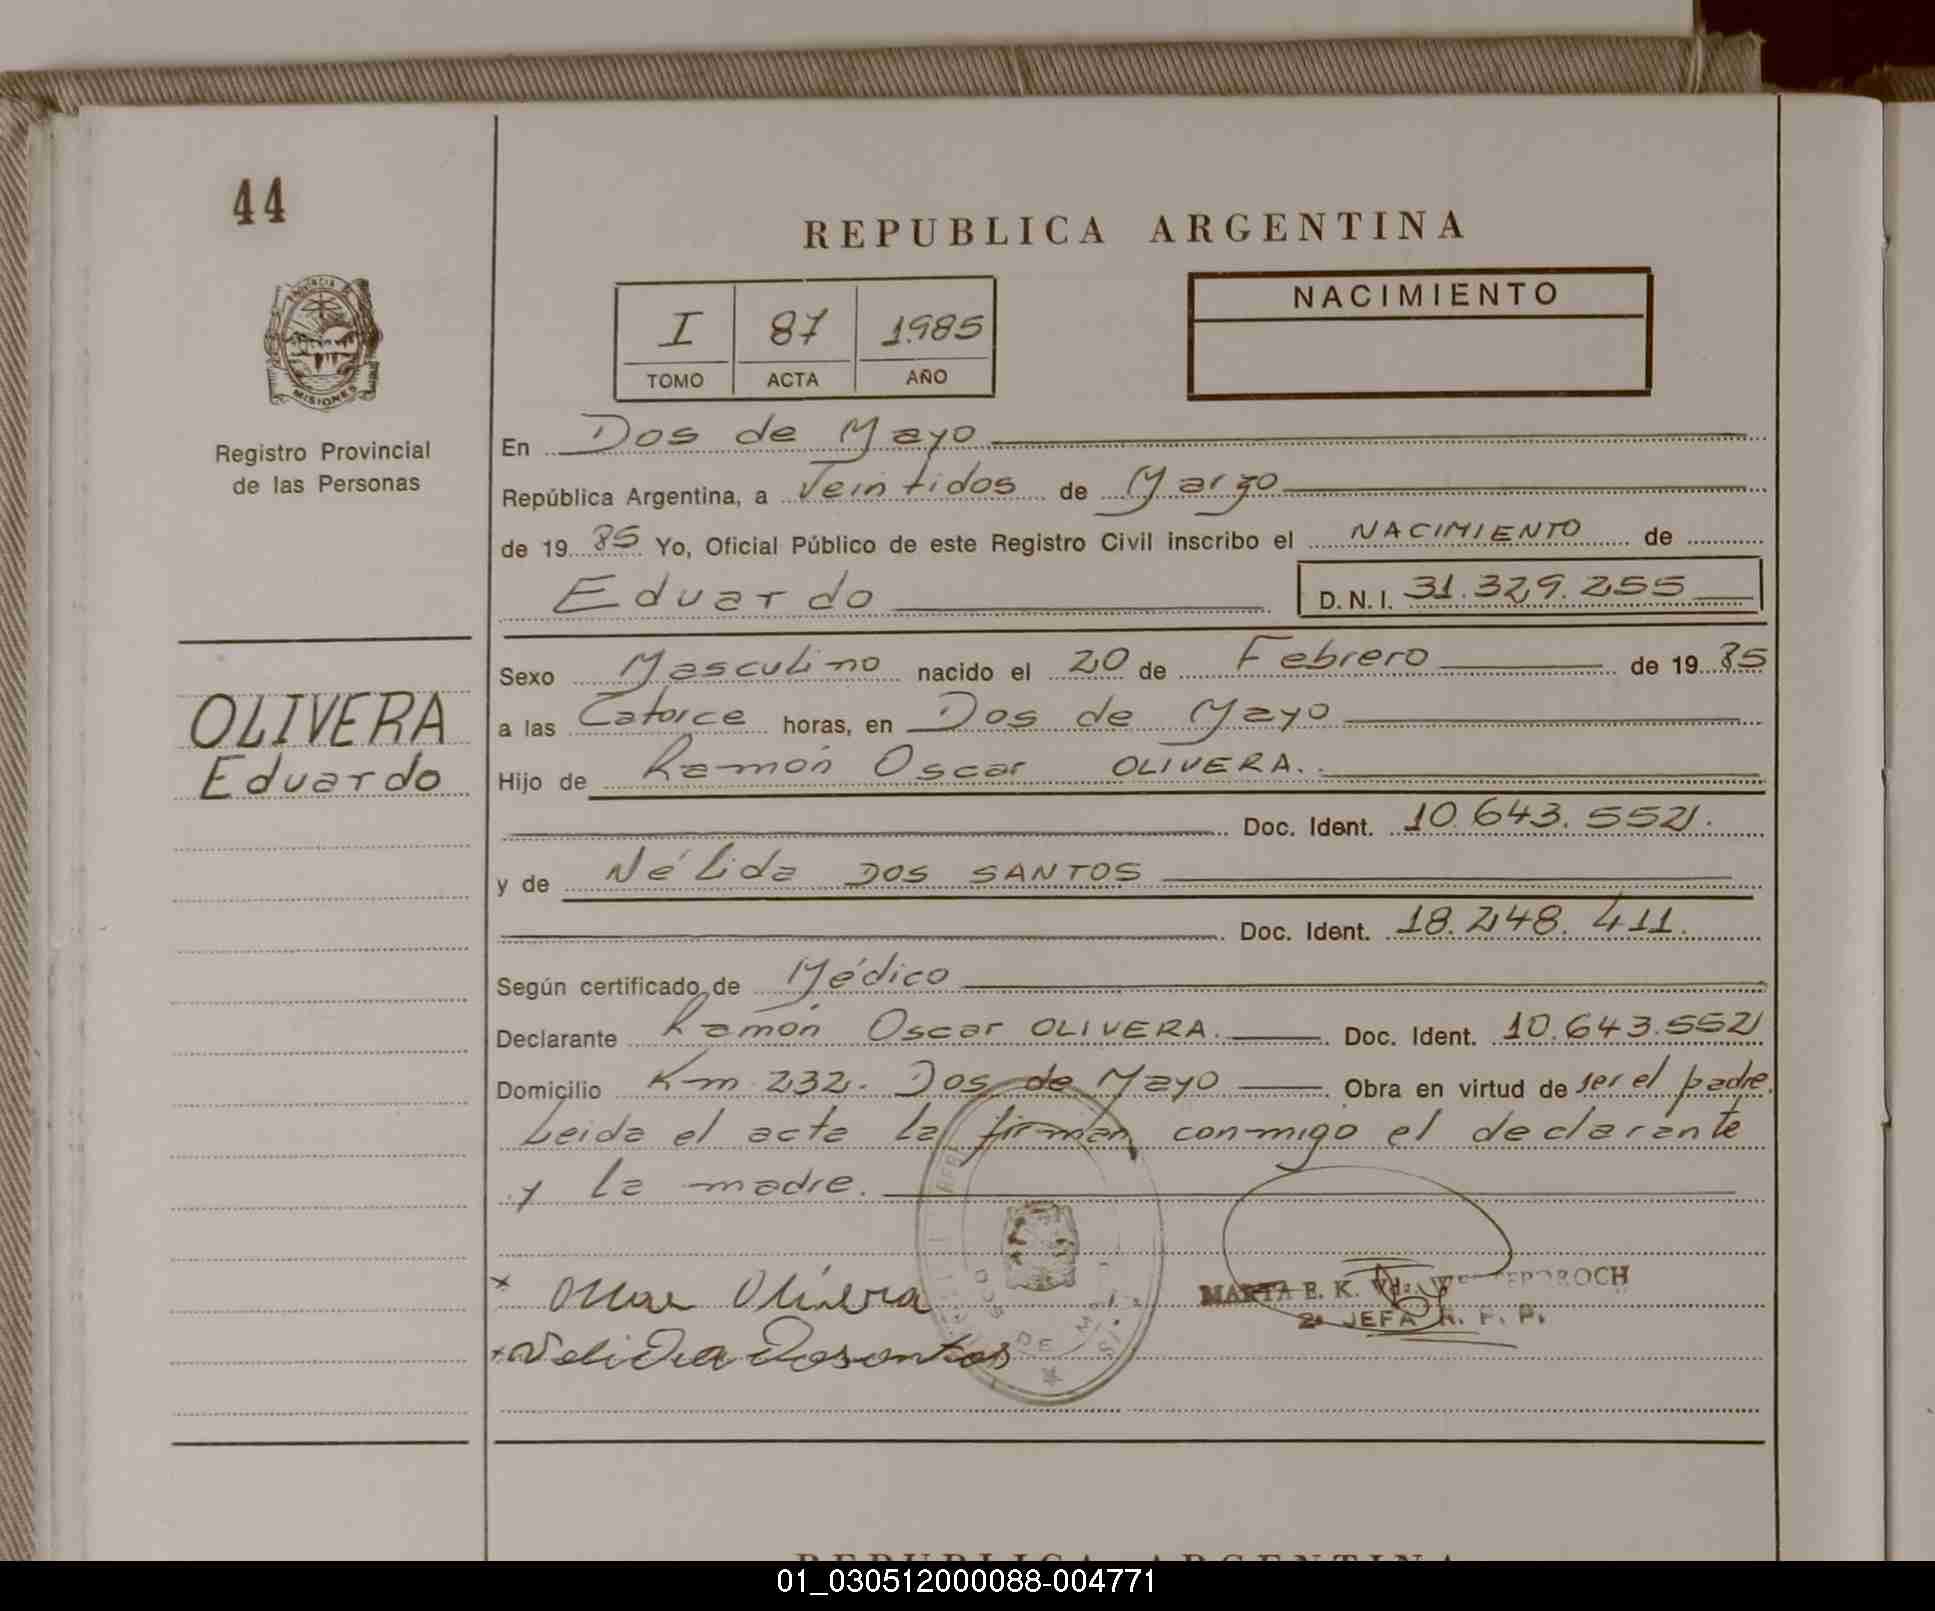 44
REPUBLICA ARGENTINA
PROVINCIA DE
MISIONES
Registro Provincial
de las Personas
I 87 1985
TOMO ACTA AÑO
NACIMIENTO
En Dos de Mayo
República Argentina, a Veintidos de Marzo
de 1985 Yo, Oficial Público de este Registro Civil inscribo el NACIMIENTO de
Eduardo D.N.I. 31.329.255
OLIVERA
Eduardo
Sexo Masculino nacido el 20 de Febrero de 1985
a las Catorce horas, en Dos de Mayo
Hijo de Ramón Oscar OLIVERA.
Doc. Ident. 10.643.552.
y de Nélida DOS SANTOS
Doc. Ident. 18.248.411.
Según certificado de Médico
Declarante Ramón Oscar OLIVERA. Doc. Ident. 10.643.552
Domicilio Km 232. Dos de Mayo Obra en virtud de ser el padre.
Leida el acta la firman conmigo el declarante
y la madre.
x Oscar Olivera
x Nelida Dosantos
MARTA E. K. Vda.
JEFA R. P. P.
REPUBLICA ARGENTINA
01_030512000088-004771